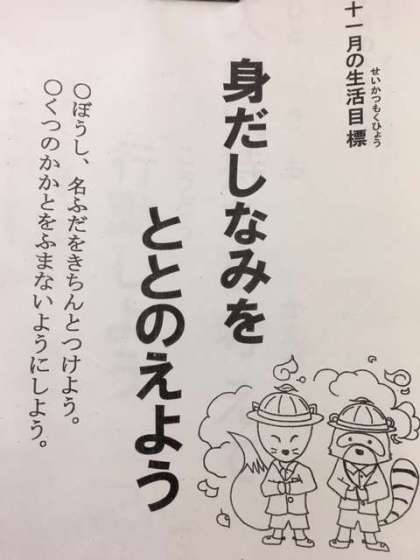 十一月の生活目標
せいかつもくひょう
身だしなみを
ととのえよう
○ぼうし、名ふだをきちんとつけよう。
○くつのかかとをふまないようにしよう。